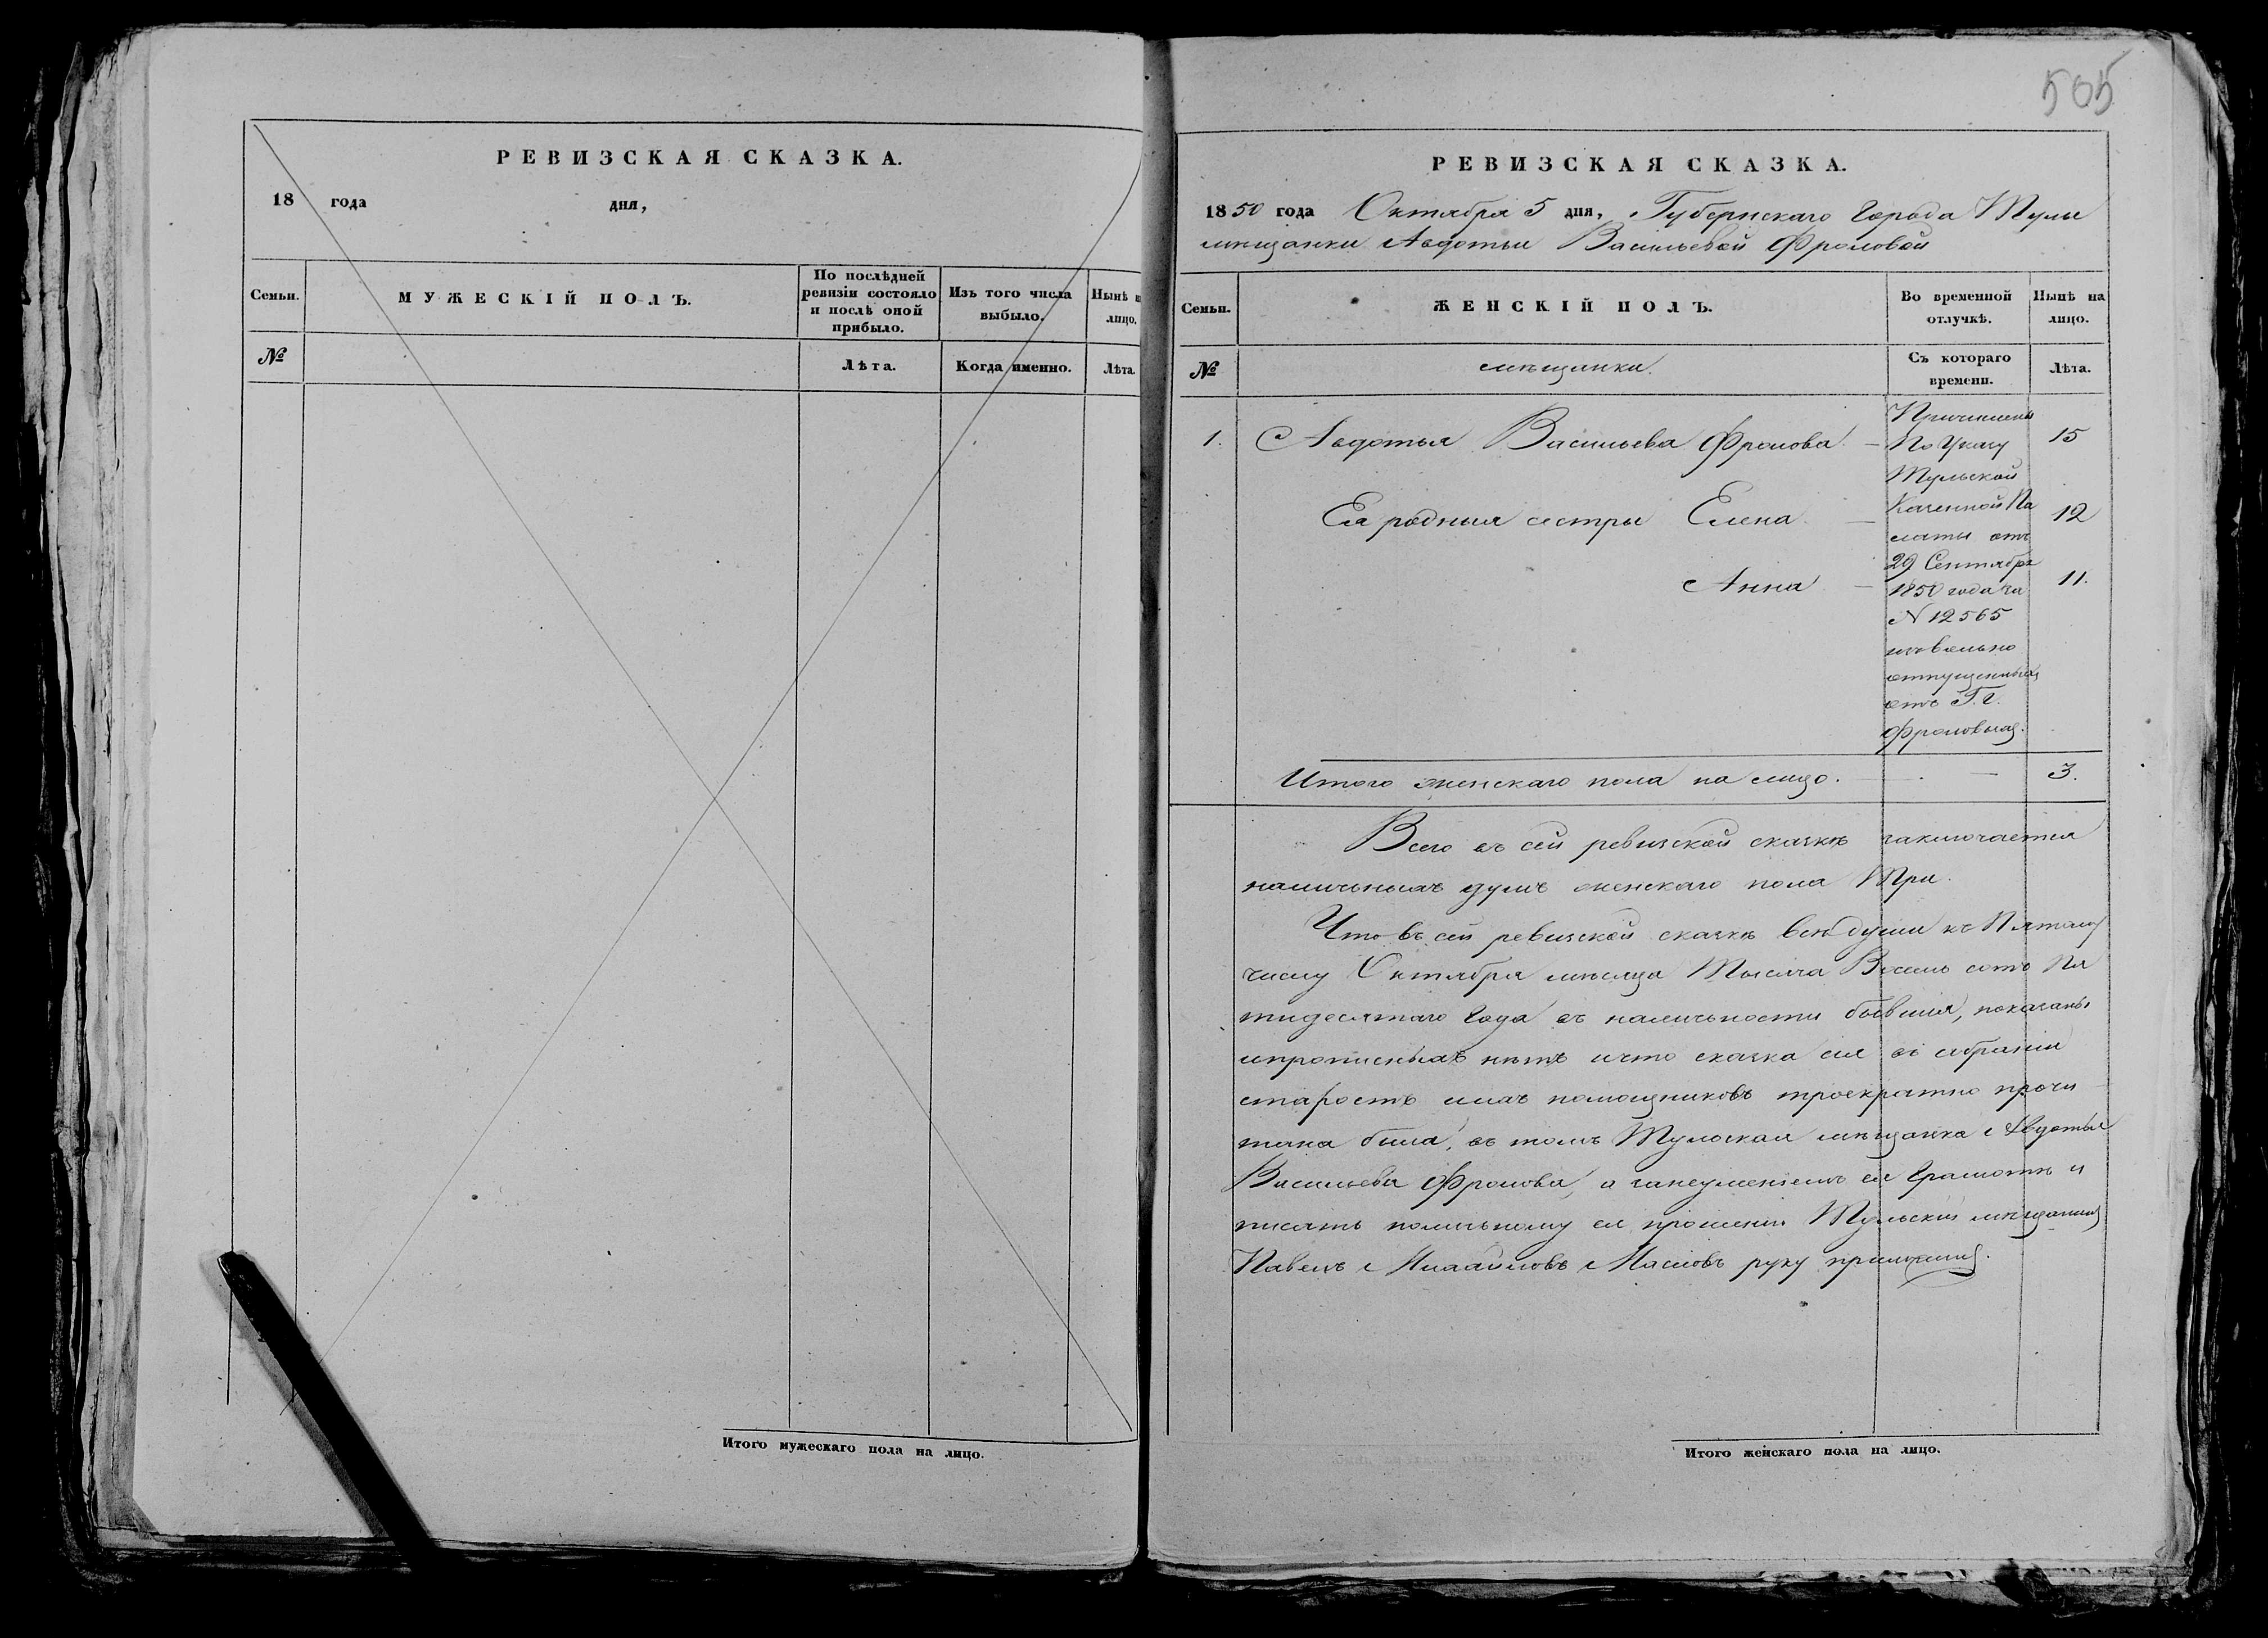 505
РЕВИЗСКАЯ СКАЗКА.
18 года дня,
Семьи.
МУЖЕСКІЙ ПОЛЪ.
По послѣдней ревизіи состояло и послѣ оной прибыло.
Изъ того числа выбыло.
Нынѣ на лицо.
№
Лѣта.
Когда именно.
Лѣта.
Итого мужескаго пола на лицо.
РЕВИЗСКАЯ СКАЗКА.
1850 года Октября 5 дня, Губернскаго Города Тулы
мѣщанки Авдотьи Васильевой Фроловой
Семьи.
ЖЕНСКІЙ ПОЛЪ.
Во временной отлучкѣ.
Нынѣ на лицо.
№
мѣщанки.
Съ котораго времени.
Лѣта.
1. Авдотья Васильева Фролова — 15
Ея родныя сестры Елена — 12
Анна — 11.
Причислены
По Указу
Тульской
Казенной Па
латы отъ
29 Сентября
1850 года за
N 12565
изъ вольно
отпущенныхъ
отъ Г. г.
Фроловыхъ.
Итого женскаго пола на лицо. — 3.
Всего въ сей ревизской сказкѣ заключается
наличныхъ душъ женскаго пола Три.
Что въ сей ревизской сказкѣ всѣ души къ Пятому
числу Октября мѣсяца Тысяча Восемь сотъ Пя
тидесятаго Года въ наличности бывшія, показаны
ипрописныхъ нѣтъ ичто сказка сія въ собраніи
старостъ ихъ помощниковъ троекратно прочи
тана была, въ томъ Тульская мѣщанка Авдотья
Васильева Фролова, а занеумѣніемъ ея Грамотѣ и
писать поличному ея прошенію Тульскій мѣщанинъ
Павелъ Михайловъ Масловъ руку приложилъ.
Итого женскаго пола на лицо.